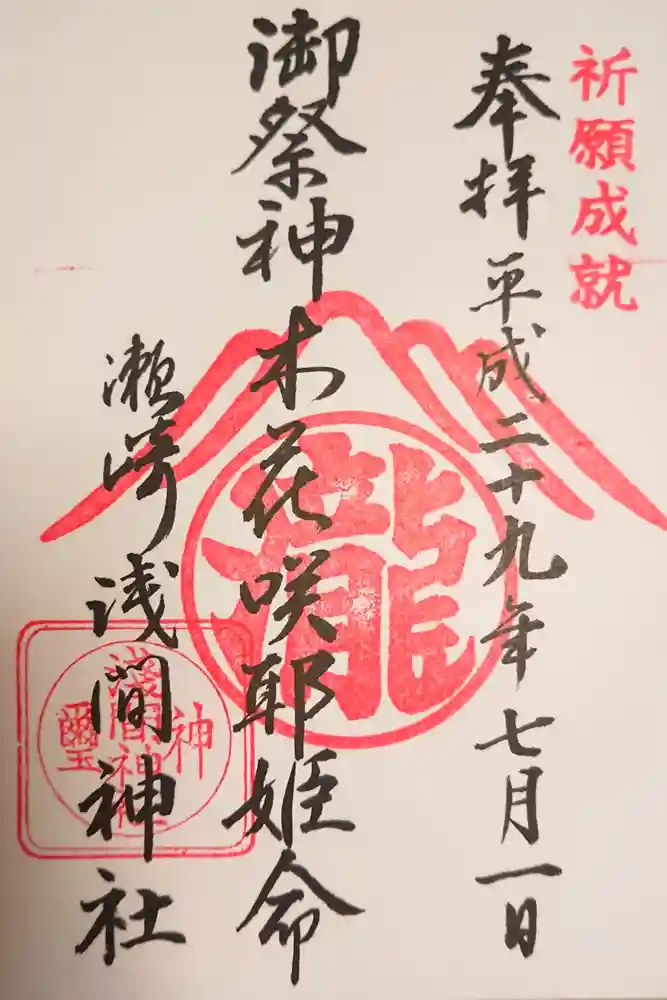 祈願成就
奉拝 平成二十九年七月一日
御祭神 木花咲耶姫命
龍
瀬崎浅間神社
浅間神社
神璽